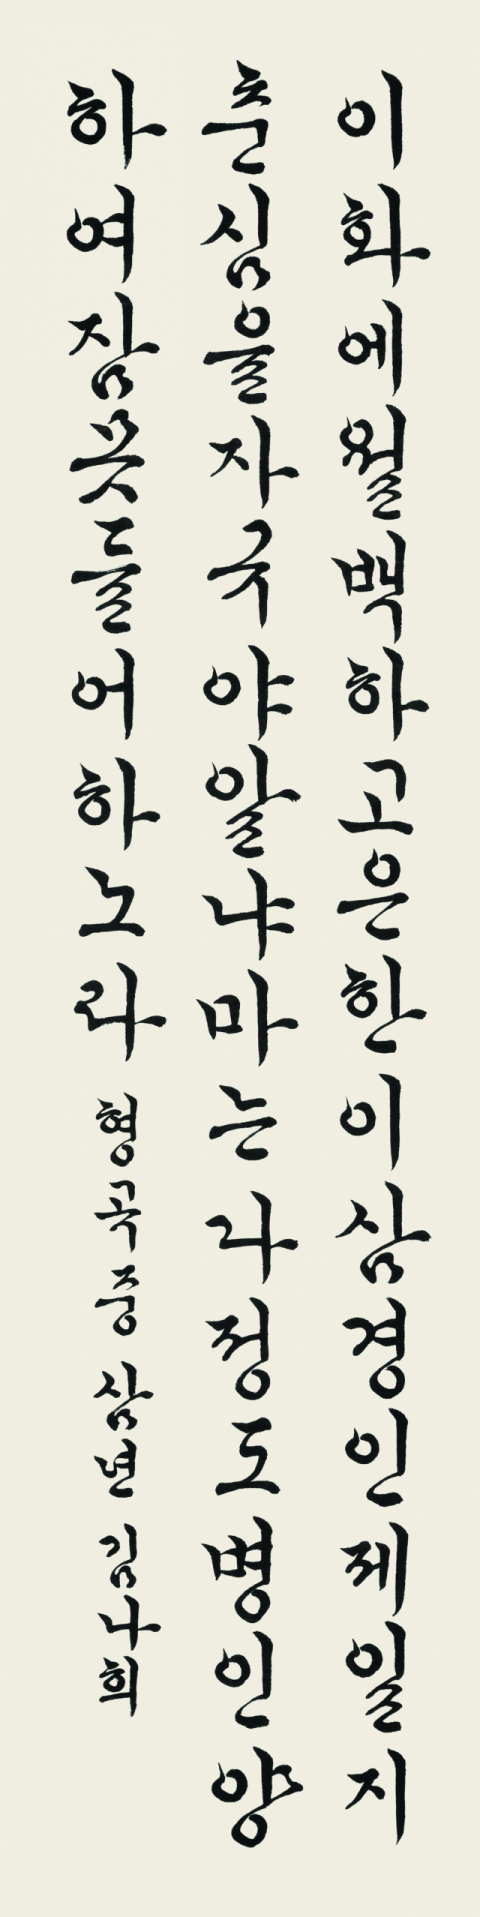 이화에월백하고은한이삼경인제일지
춘심을자규야알냐마는다정도병인양
하여잠못들어하노라 형곡중 삼년 김나희